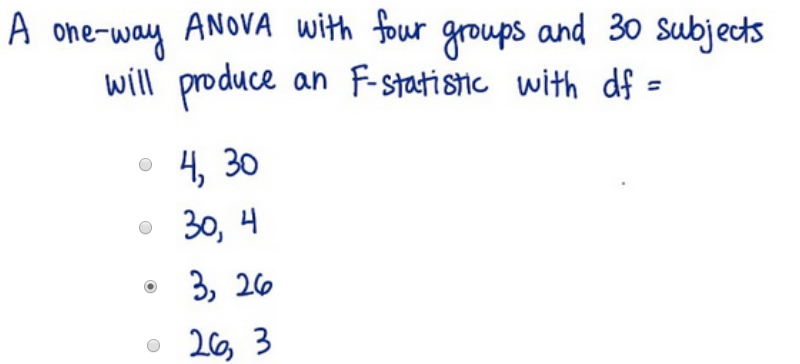 A one-way ANOVA with four groups and 30 subjects
will produce an F-statistic with df =
4, 30
30, 4
3, 26
26, 3